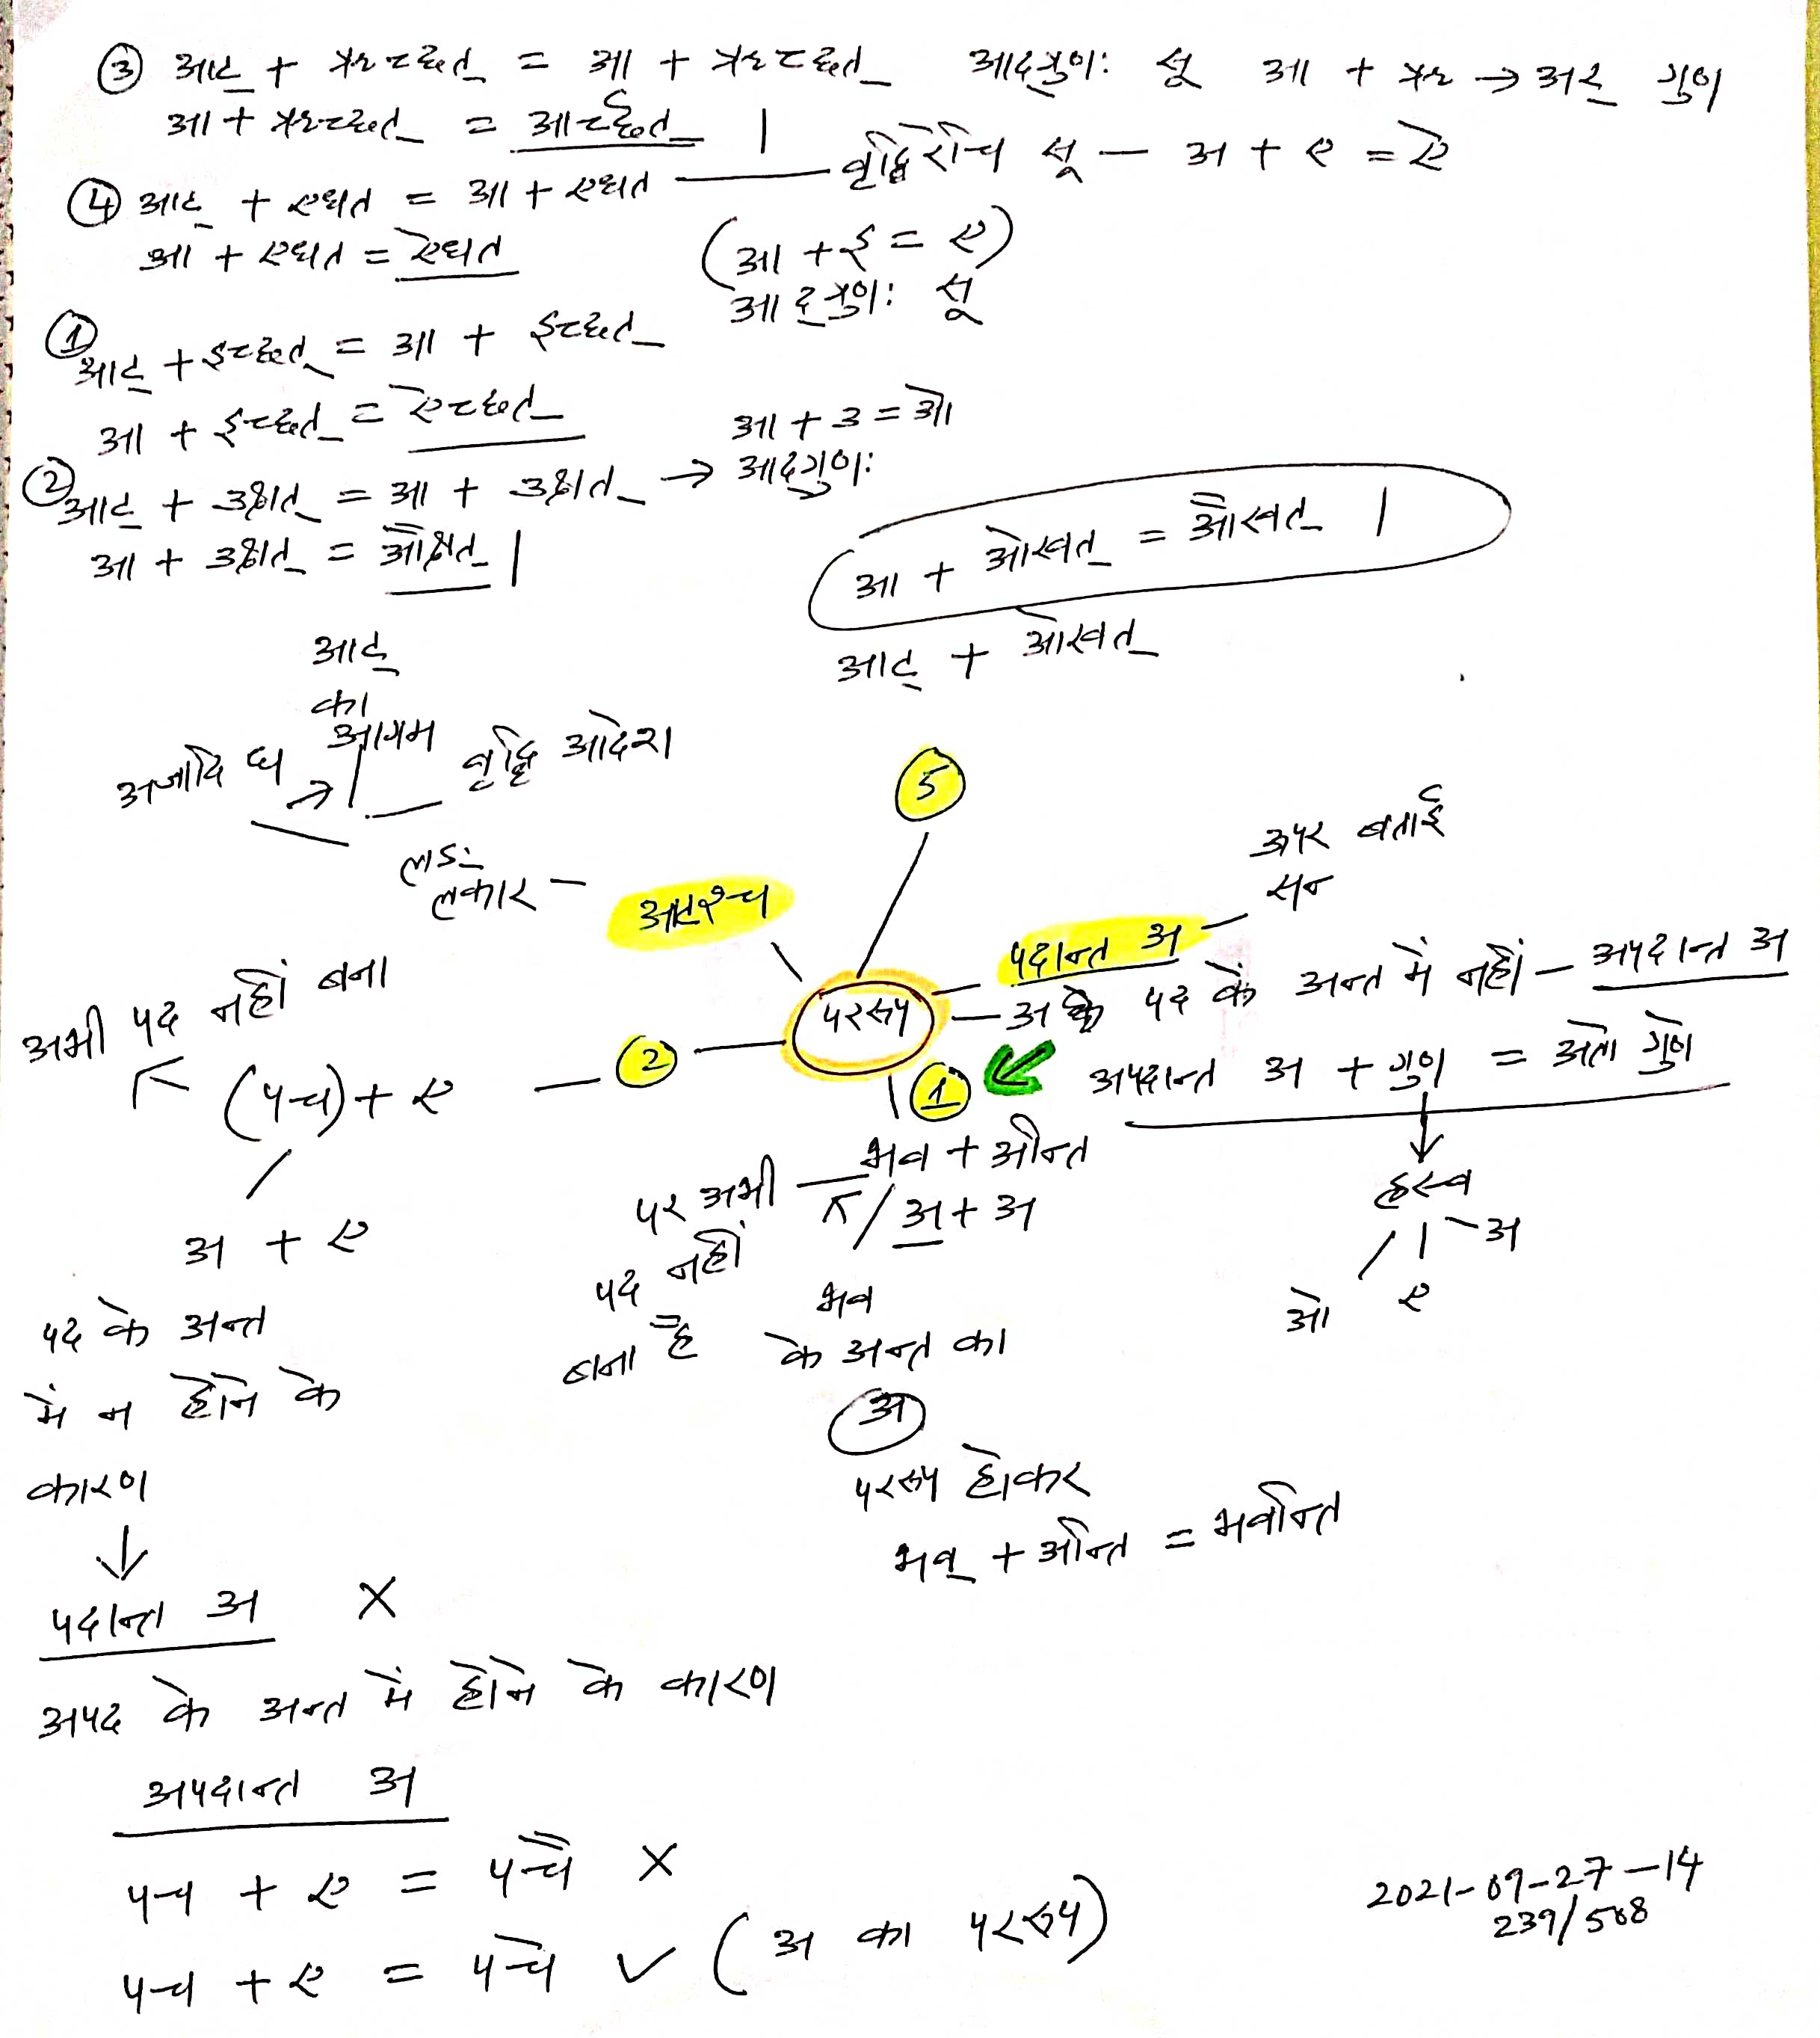 ③ आट् + ऋच्छत् = आ + ऋच्छत् आद्गुणः सू आ + ऋ → अर् गुण
आ + ऋच्छत् = आर्च्छत् |
④ आट् + एधत = आ + एधत — वृद्धिरेचि सू — अ + ए = ऐ
आ + एधत = ऐधत
(आ + ई = ए)
आद्गुणः सू
① आट् + इच्छत् = आ + इच्छत्
आ + इच्छत् = ऐच्छत्
② आट् + उक्षत् = आ + उक्षत् → आद्गुणः
आ + उ = ओ
आ + उक्षत् = औक्षत् |
आ + ओखत् = औखत् |
आट् + ओखत्
आट्
का
आगम
अजादि धा → वृद्धि आदेश
लङ्
लकार –
आटश्च
5
पररूप
पदान्त अ – ऊपर बताई
सन
– अ के पद के अन्त में नहीं – अपदान्त अ
अपदान्त अ + गुण = अतो गुणे
↓
ह्रस्व
अ
ओ ए
2 — (पच) + ए
अभी पद नहीं बना
अ + ए
पद के अन्त
में न होने के
कारण
↓
पदान्त अ ×
अपद के अन्त में होने के कारण
अपदान्त अ
पच + ए = पचै ×
पच + ए = पचे ✓ (अ का पररूप)
1
भव + अन्ति
अ + अ
पर अभी
पद नहीं
बना है
भव
के अन्त का
अ
पररूप होकर
भव् + अन्ति = भवन्ति
2021-09-27-14
239/508